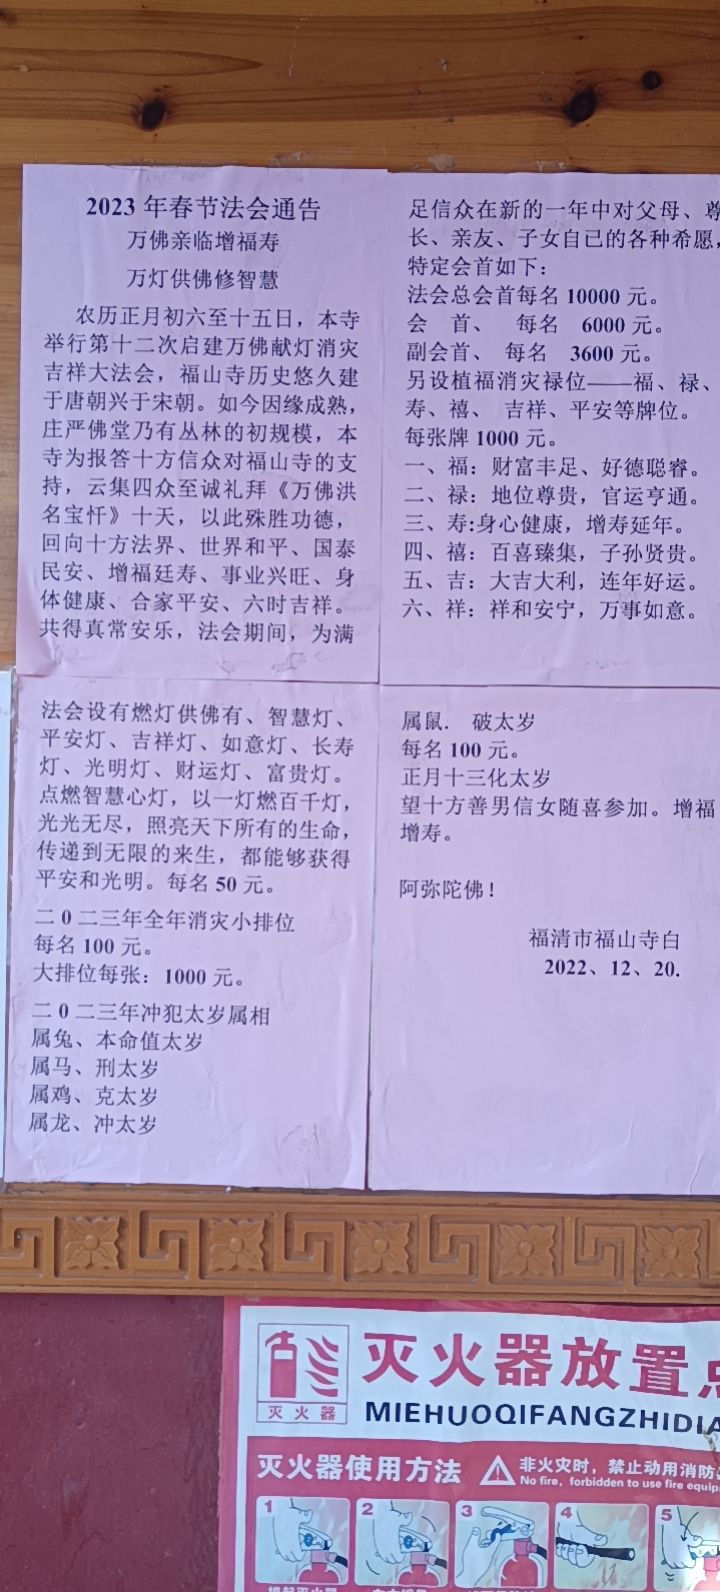 2023 年春节法会通告
万佛亲临增福寿
万灯供佛修智慧
农历正月初六至十五日，本寺
举行第十二次启建万佛献灯消灾
吉祥大法会，福山寺历史悠久建
于唐朝兴于宋朝。如今因缘成熟，
庄严佛堂乃有丛林的初规模，本
寺为报答十方信众对福山寺的支
持，云集四众至诚礼拜《万佛洪
名宝忏》十天，以此殊胜功德，
回向十方法界、世界和平、国泰
民安、增福廷寿、事业兴旺、身
体健康、合家平安、六时吉祥。
共得真常安乐，法会期间，为满
足信众在新的一年中对父母、尊
长、亲友、子女自已的各种希愿，
特定会首如下：
法会总会首每名 10000 元。
会 首、 每名 6000 元。
副会首、 每名 3600 元。
另设植福消灾禄位——福、禄、
寿、禧、 吉祥、平安等牌位。
每张牌 1000 元。
一、福：财富丰足、好德聪睿。
二、禄：地位尊贵，官运亨通。
三、寿:身心健康，增寿延年。
四、禧：百喜臻集，子孙贤贵。
五、吉：大吉大利，连年好运。
六、祥：祥和安宁，万事如意。
法会设有燃灯供佛有、智慧灯、
平安灯、吉祥灯、如意灯、长寿
灯、光明灯、财运灯、富贵灯。
点燃智慧心灯，以一灯燃百千灯，
光光无尽，照亮天下所有的生命，
传递到无限的来生，都能够获得
平安和光明。每名 50 元。
二 0 二三年全年消灾小排位
每名 100 元。
大排位每张：1000 元。
二 0 二三年冲犯太岁属相
属兔、本命值太岁
属马、刑太岁
属鸡、克太岁
属龙、冲太岁
属鼠. 破太岁
每名 100 元。
正月十三化太岁
望十方善男信女随喜参加。增福
增寿。
阿弥陀佛！
福清市福山寺白
2022、12、20.
灭火器
灭火器放置点
MIEHUOQIFANGZHIDIA
灭火器使用方法
非火灾时，禁止动用消防
No fire, forbidden to use fire equip
1
2
3
4
5